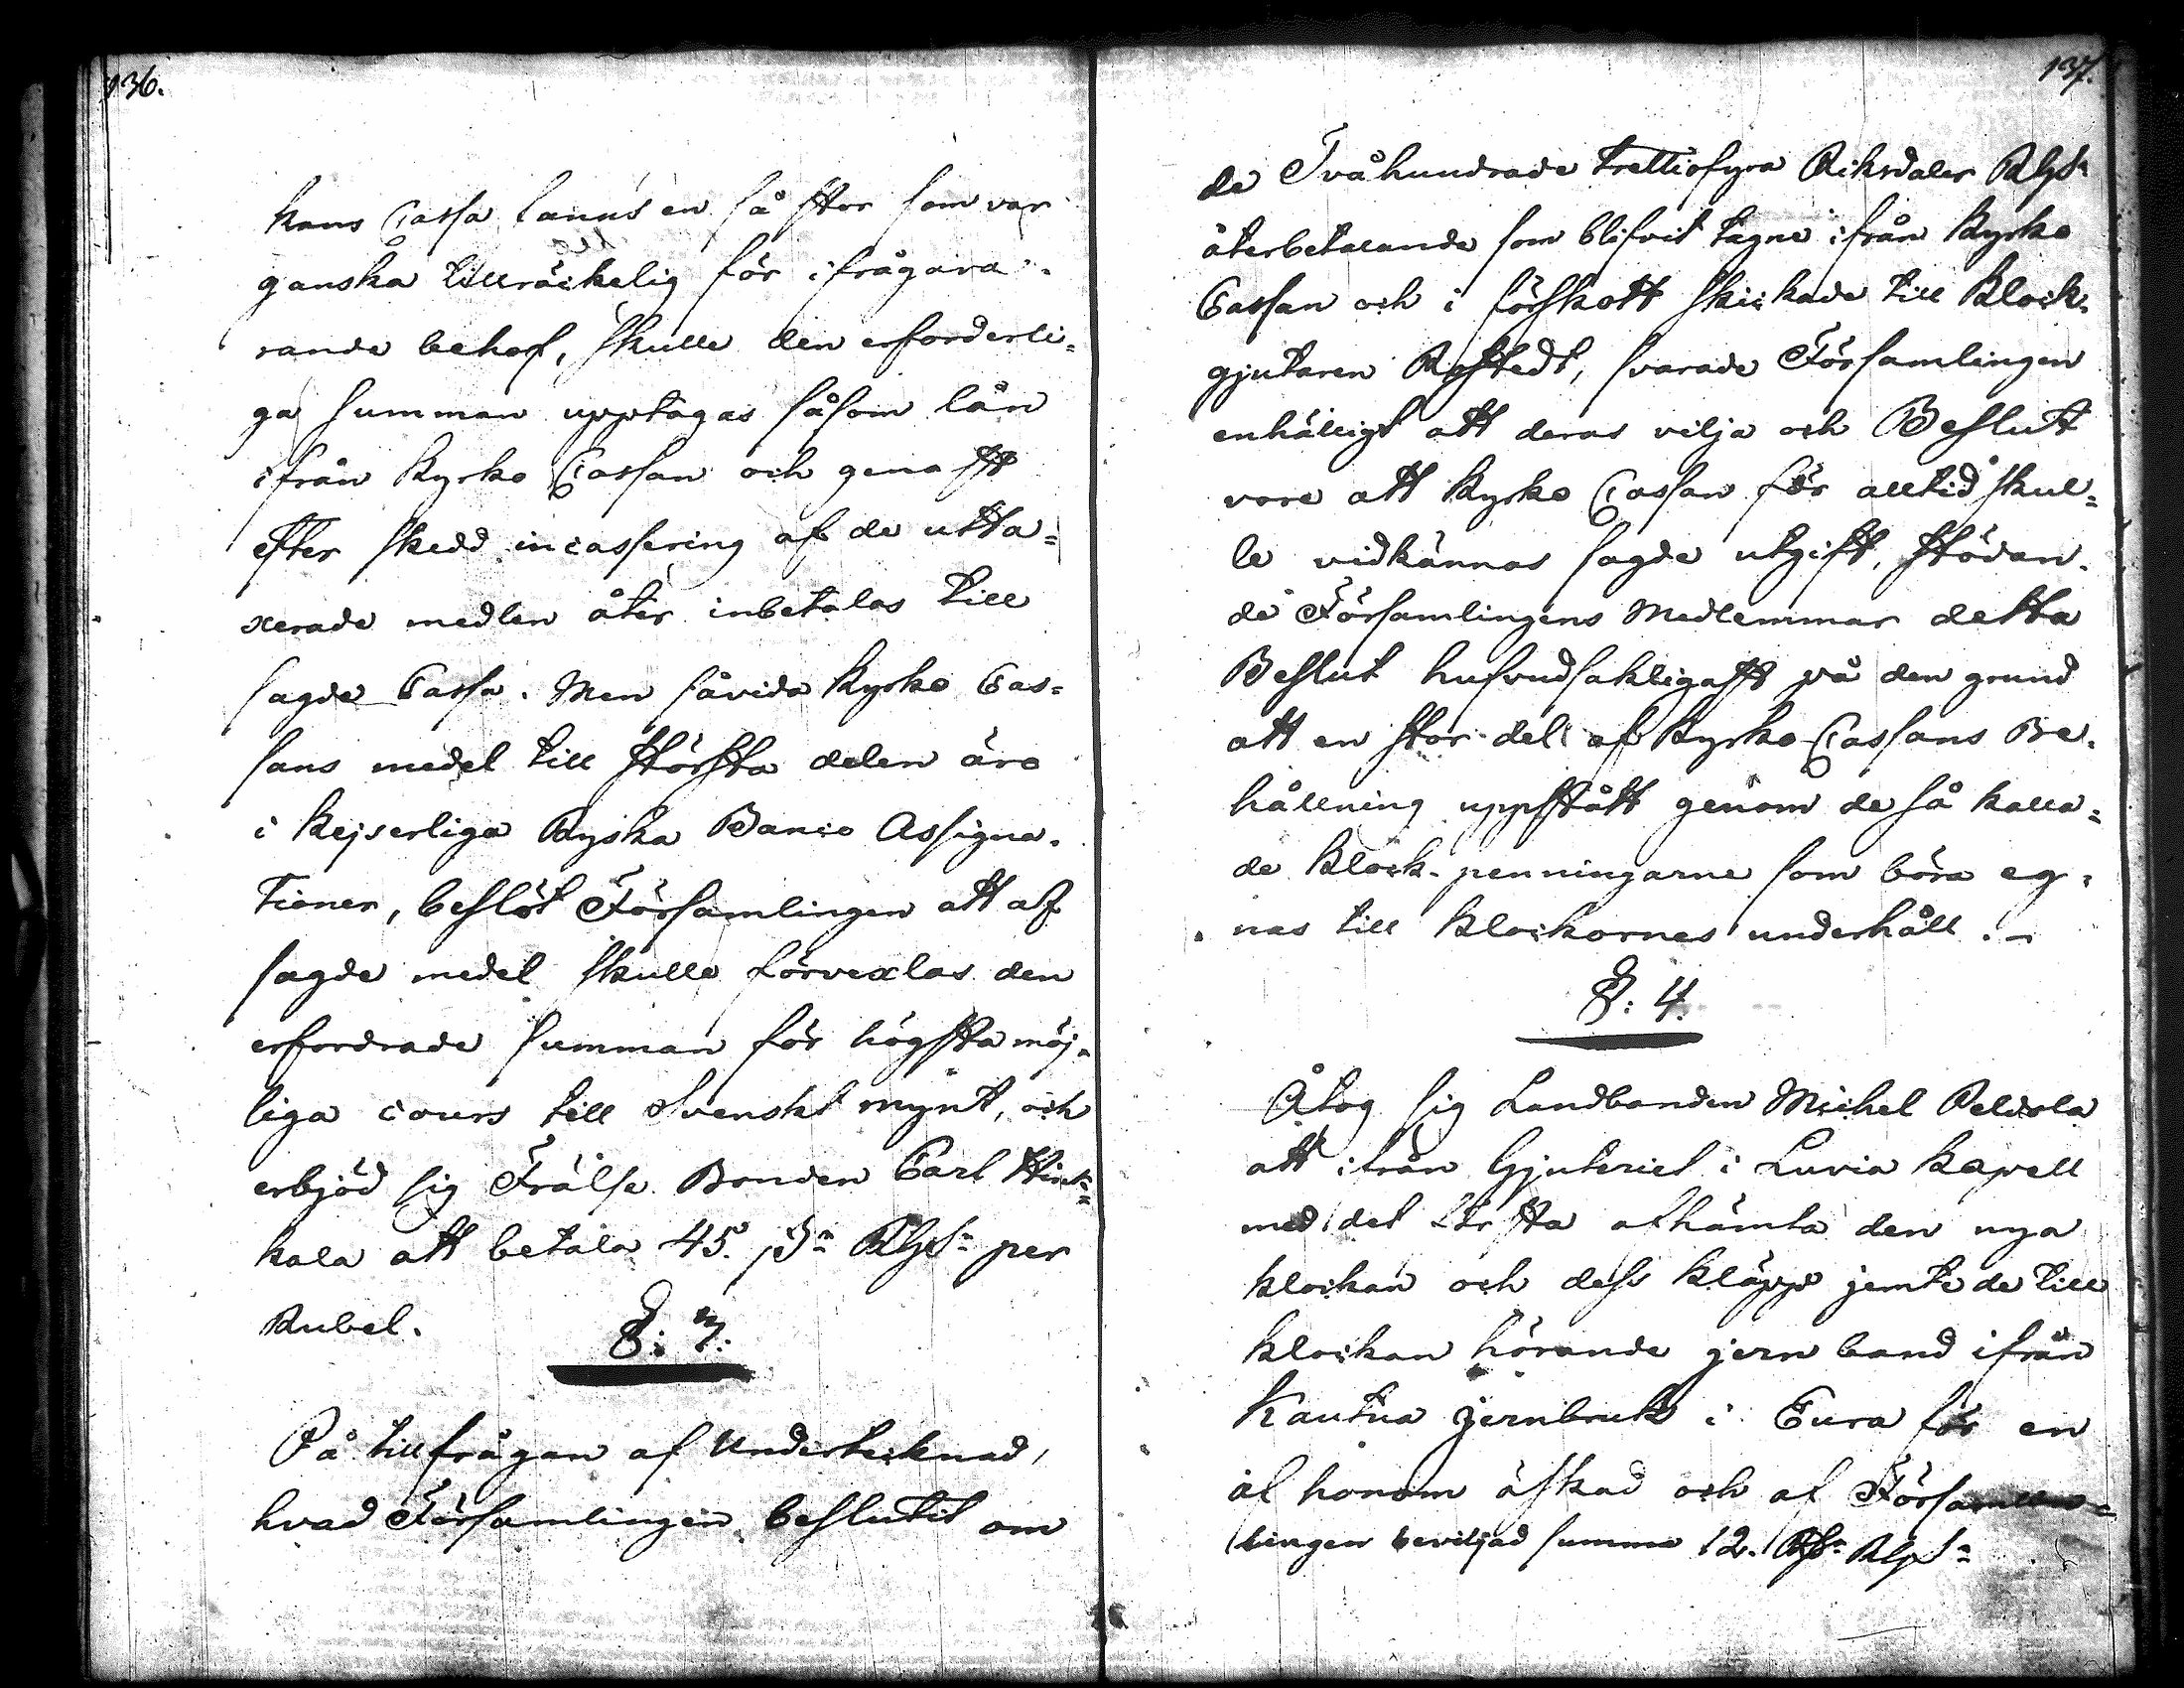 136.
kans Cassa fanns en så stor som var
ganska tillräckelig för ifrågava-
rande behof, skulle den erforderli=
ga summan upptagas såsom lån
ifrån Kyrko Cassan och genast
efter skedd incassering af de utta=
xerade medlen åter inbetalas till
sagde Cassa. Men såvida Kyrko Cas=
sans medel till största delen äro
i Kejserliga Ryska Banco Assigna-
tioner, beslöt Församlingen att af
sagde medel skulle förvexlas den
erfordrade summan för högsta möj-
liga cours till Svenskt mynt, och
erbjöd sig Frälse Bonden Carl Hink=
kala att betala 45. ß:r Rgs: per
Rubel.
§: 3.
På tillfrågan af Undertecknad,
hvad Församlingen beslutit om
137.
de Tvåhundrade trettiofyra Riksdaler Rgs:
återbetalande som blifvit tagne ifrån Kyrko
Cassan och i förskott skickade till Klock-
gjutaren, svarade Församlingen
enhälligt att deras vilja och Beslut
vore att Kyrko Cassan för alltid skul=
le vidkännas sagde utgift, stödan-
de Församlingens Medlemmar detta
Beslut hufvudsakligast på den grund
att en stor del af Kyrko Cassans Be-
hållning uppstått genom de så kalla=
de Klock-penningarne som böra eg-
nas till Klockornes underhåll.-
§: 4.
Åtog sig Landbonden Michel Peldola
att ifrån Gjuteriet i Luvia Kapell
med det första afhämta den nya
klockan och dess kläpp jemte de till
klockan hörande jern band ifrån
Kautua jernbruk i Eura för en
af honom äskad och af Försam=
lingen beviljad summa 12. Rgs: